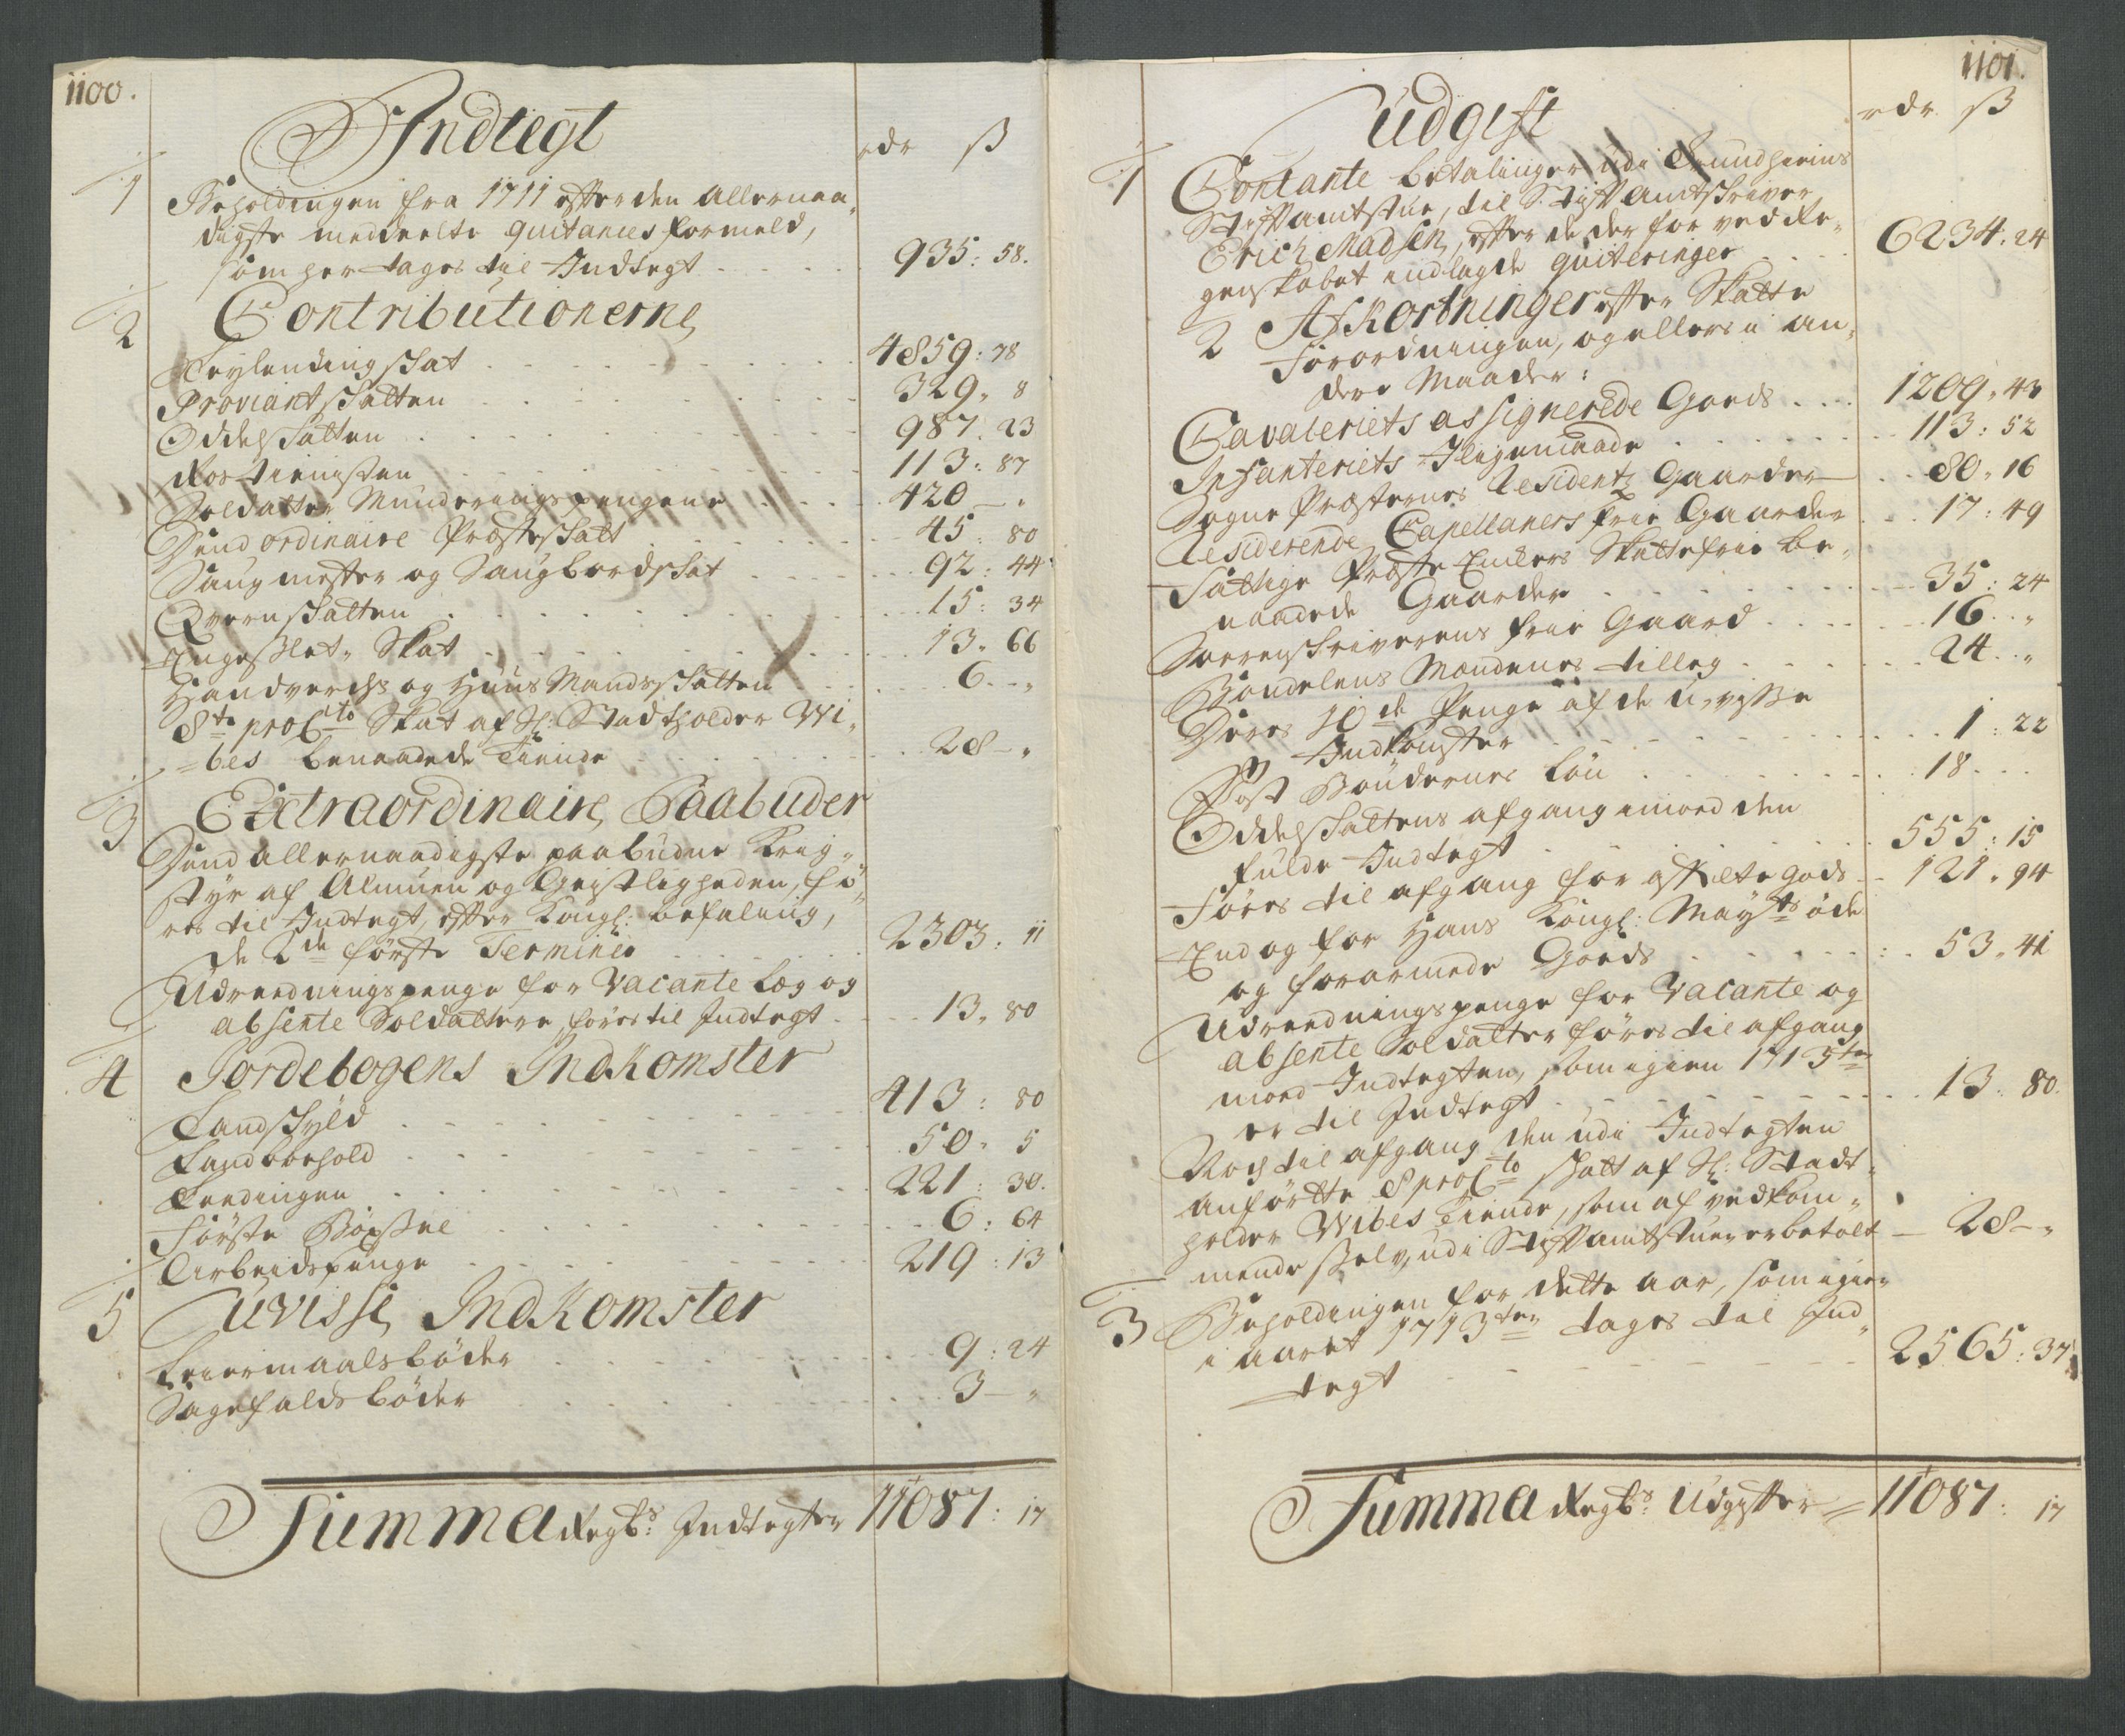 1100.
Indtegt
rdr ß
1
Beholdingen fra 1711 efter den allernaa¸
digste meddeelte quitances formeld,
som her tages til Indtegt 935: 58.
2
Contributionerne
Leylending skat 4859: 78
Proviant skatten 329" 8
Oddelskatten 987. 23
Ros tienisten 113: 87
Soldatter Munderings pengene 420 — "
Dend ordinaire Præsteskatt 45: 80
Saugmester og Saugbordskat 92: 44
Qvernskatten 15: 34
Engesslet" Skat 13" 66
Handverchs og Huus Mandsskatten 6 — "
8te pro Cto Skat af H: Stadtholder Wi¸
=bes benaadede Tiende 28 — "
3
Extraordinaire Paabuder
Dend allernaadigste paabudne Krig¸
styr af Almuen og Geistligheden, fö¸
res til Indtegt, efter Kongl: befaling,
de 2de förste Terminer 2303: 11
Udreednings penge for Vacante Læg og
absente Soldattere, föres til Indtegt 13" 80
4 Jordebogens Indkomster
Landskyld 413: 80
Landboehold 50" 5
Leedingen 221: 30.
Förste Böxsel 6: 64
Arbeidspenge 219: 13
5 Uvisse Indkomster
Leiermaalsböder 9: 24
Sagefaldsböder 3 — "
Summa Regbs: Indtegter 11087: 17
1101.
Udgift
rdr ß
1
Contante betalinger udi Trundhiems
Stiftamtstue, til Stiftamtskriver
Erich Madsen, efter de der for ved Re¸
genskabet indlagde quiteringer 6234. 24
2 Afkortninger efter Skatte
Forordningen, og ellers i an¸
dere Maader:
Cavaleriets assignerede Goeds 1209" 43
Infanteriets Iligemaade 113: 52
Sogne Præsternes Residentz Gaarder 80" 16
Residerende Capellaners frie Gaarder 17: 49
Fattige Præste Enkers Skattefrie be¸
naadede Gaarder 35: 24
Sorenskriverens frie Gaard 16 "
Bondelens Mændenes tilleg 24 "
Deres 10de Penge af de u¸visse
Indkomster 1: 22
Post Böndernes Lön 18
Oddelskattens afgang imod den
fulde Indtegt 555: 15
Föres til afgang for Gods 121" 94
End og for Hans Kongl: Mayts öde
og forarmede Goeds 53" 41
Udreednings penge for Vacante og
absente Soldatter föres til afgang
imod Indtegten, som igien 1713ten
er til Indtegt 13: 80.
Noch til afgang den udi Indtegten
anförtte 8 pro Cto skatt af H: Stadt¸
holder Wibes Tiende, som af vedkom¸
mende sselv, udi Stiftamtstuen er betalt 28 — "
3
Beholdingen for dette aar, som igien
i aaret 1713ten tages til Ind¸
tegt 2565: 37
Summa Regbs: Udgifter = 11087: 17